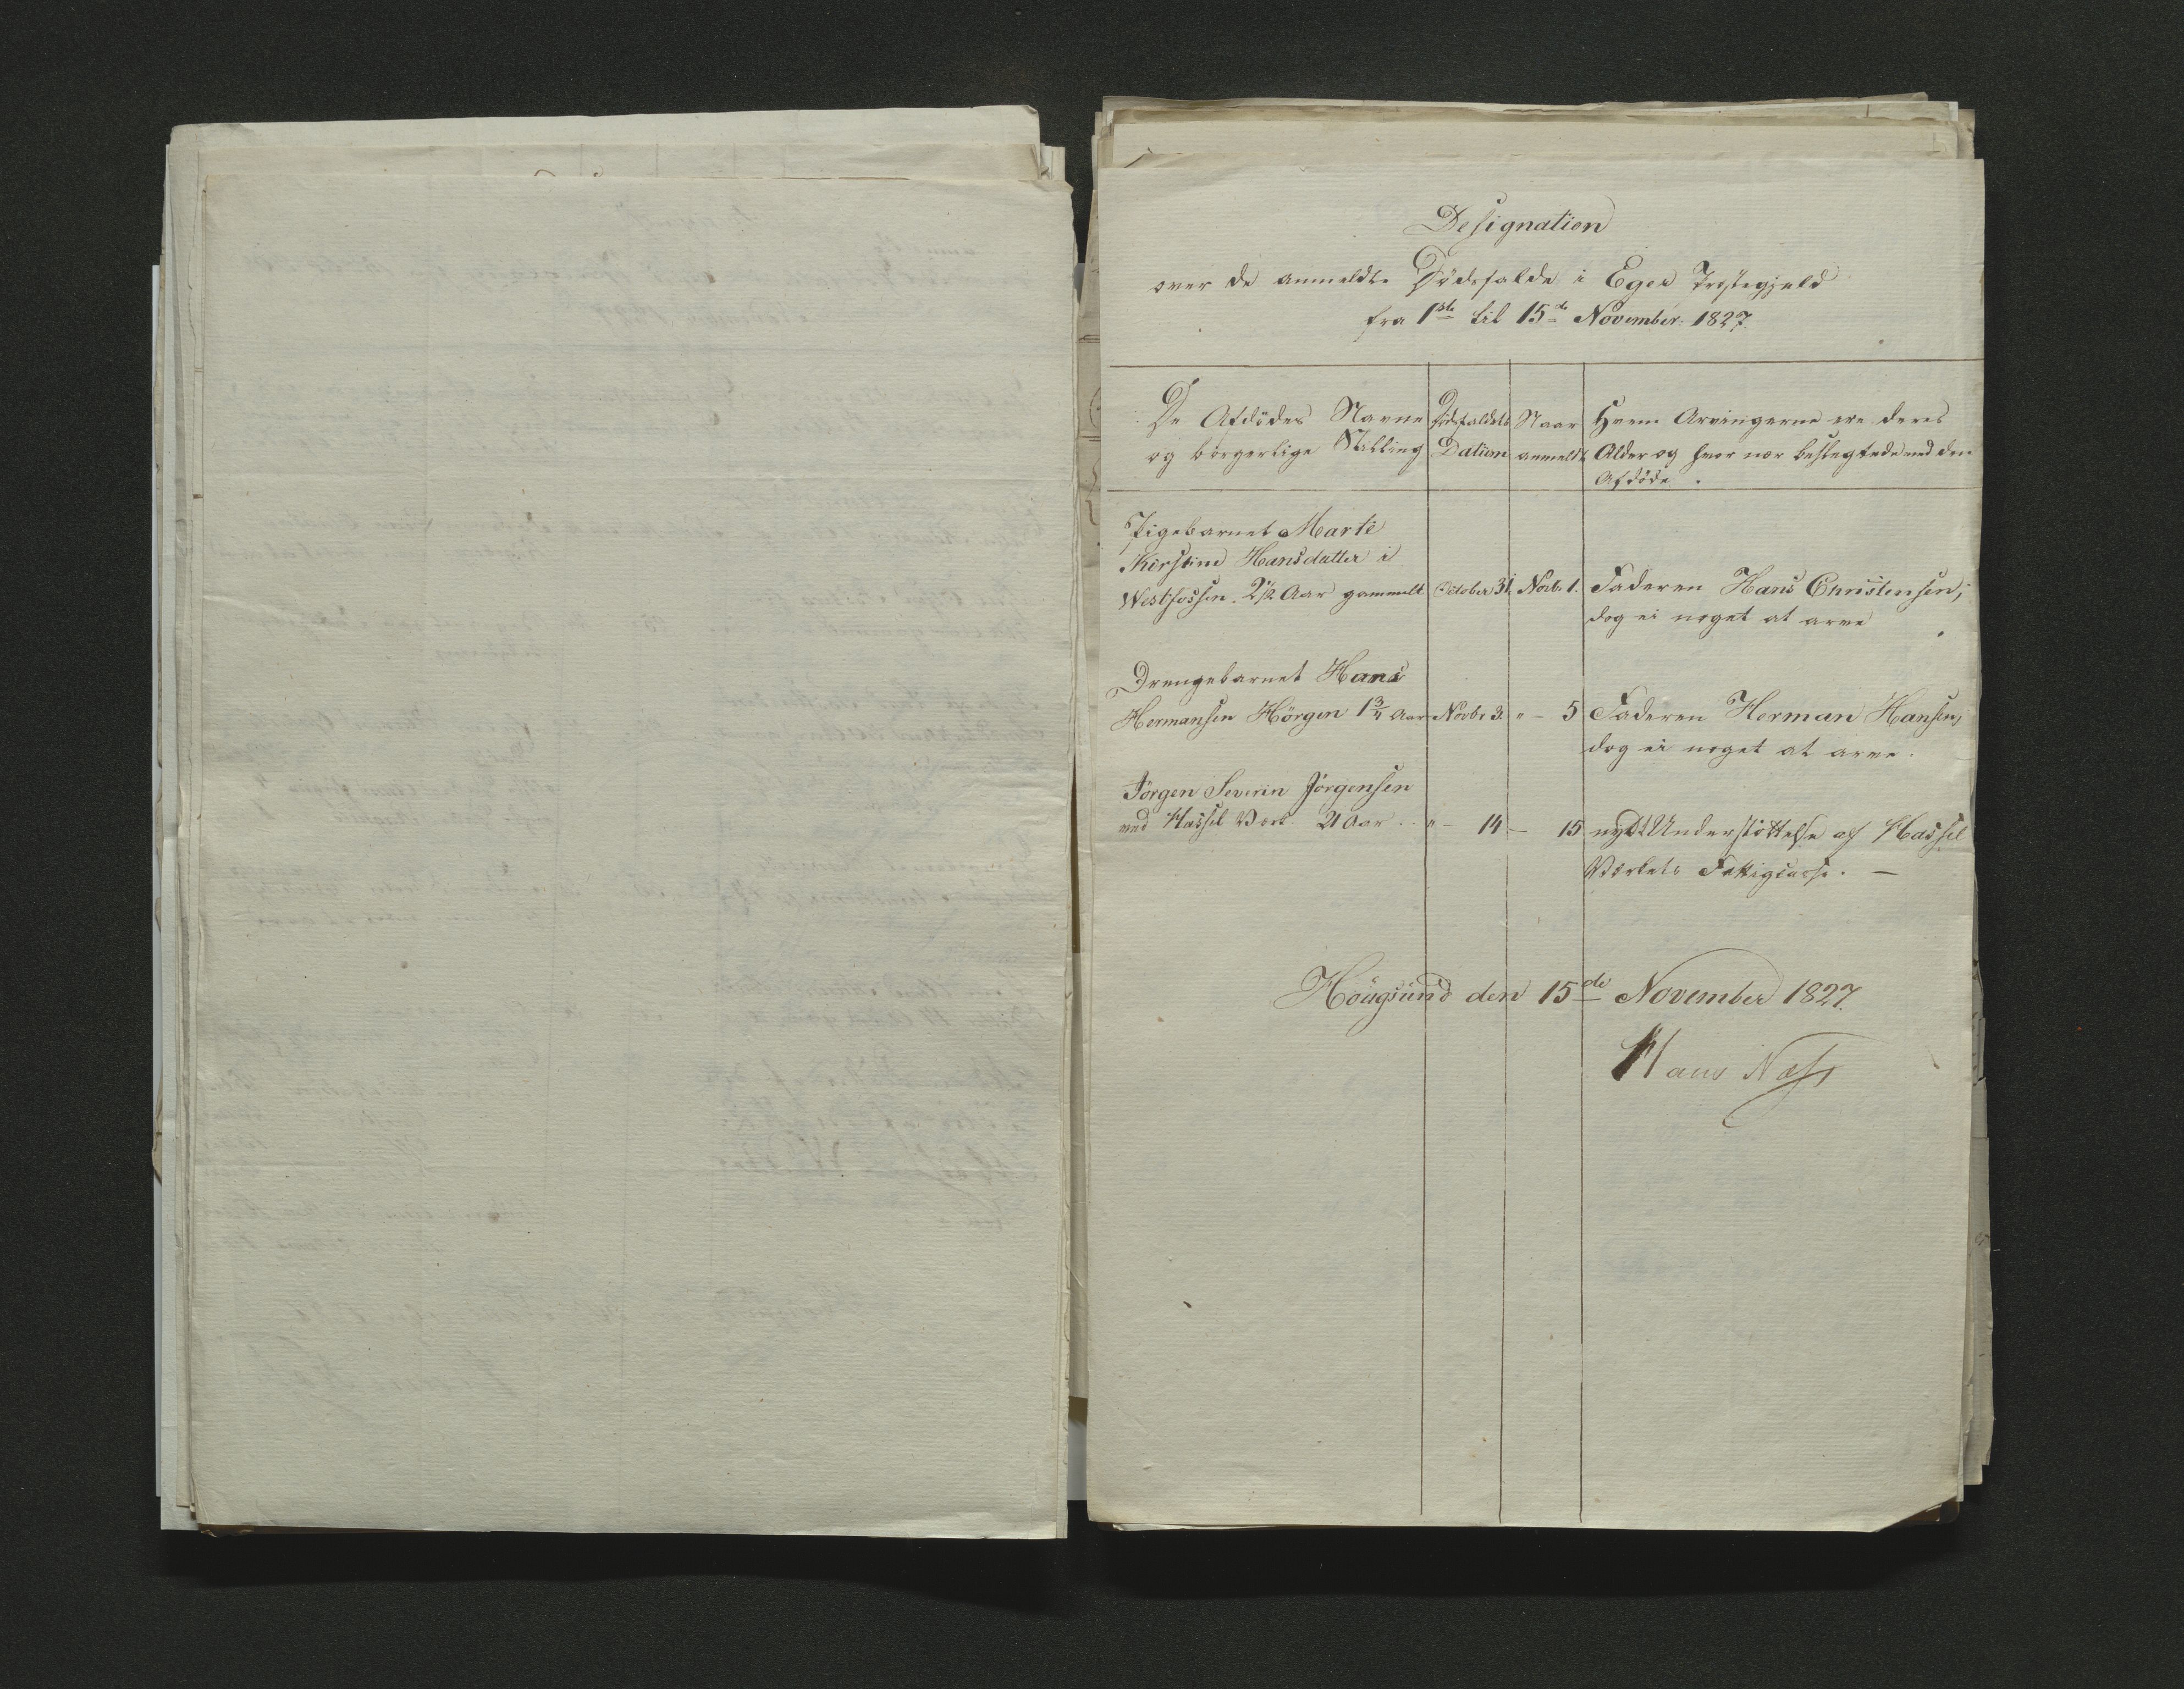 Designation
over de anmeldte Dödsfalde i Eger Præstegjeld
fra 1ste til 15de November 1827.
De Afdödes Navne
og börgerlige Stilling
Dödsfaldets
Datum
Naar
anmeldt
Hvem Arvingerne ere deres
Alder og hvor nær beslegtede med den
Afdöde.
Pigebarnet Marte
Kirstine Hansdatter i
Westfossen. 2 1/2 Aar gammelt
October 31.
Novb. 1.
Faderen Hans Christensen,
dog ei noget at arve
Drengebarnet Hans
Hermansen Hörgen 1 3/4 Aar
Novbr 3.
" - 5
Faderen Herman Hansen,
dog ei noget at arve.
Jörgen Severin Jörgensen
ved Hassel Værk. 21 Aar.
" - 14
- 15
nydt Understöttelse af Hassel
Værkets Fattigcasse. -
Höugsund den 15de November 1827.
Hans Næss